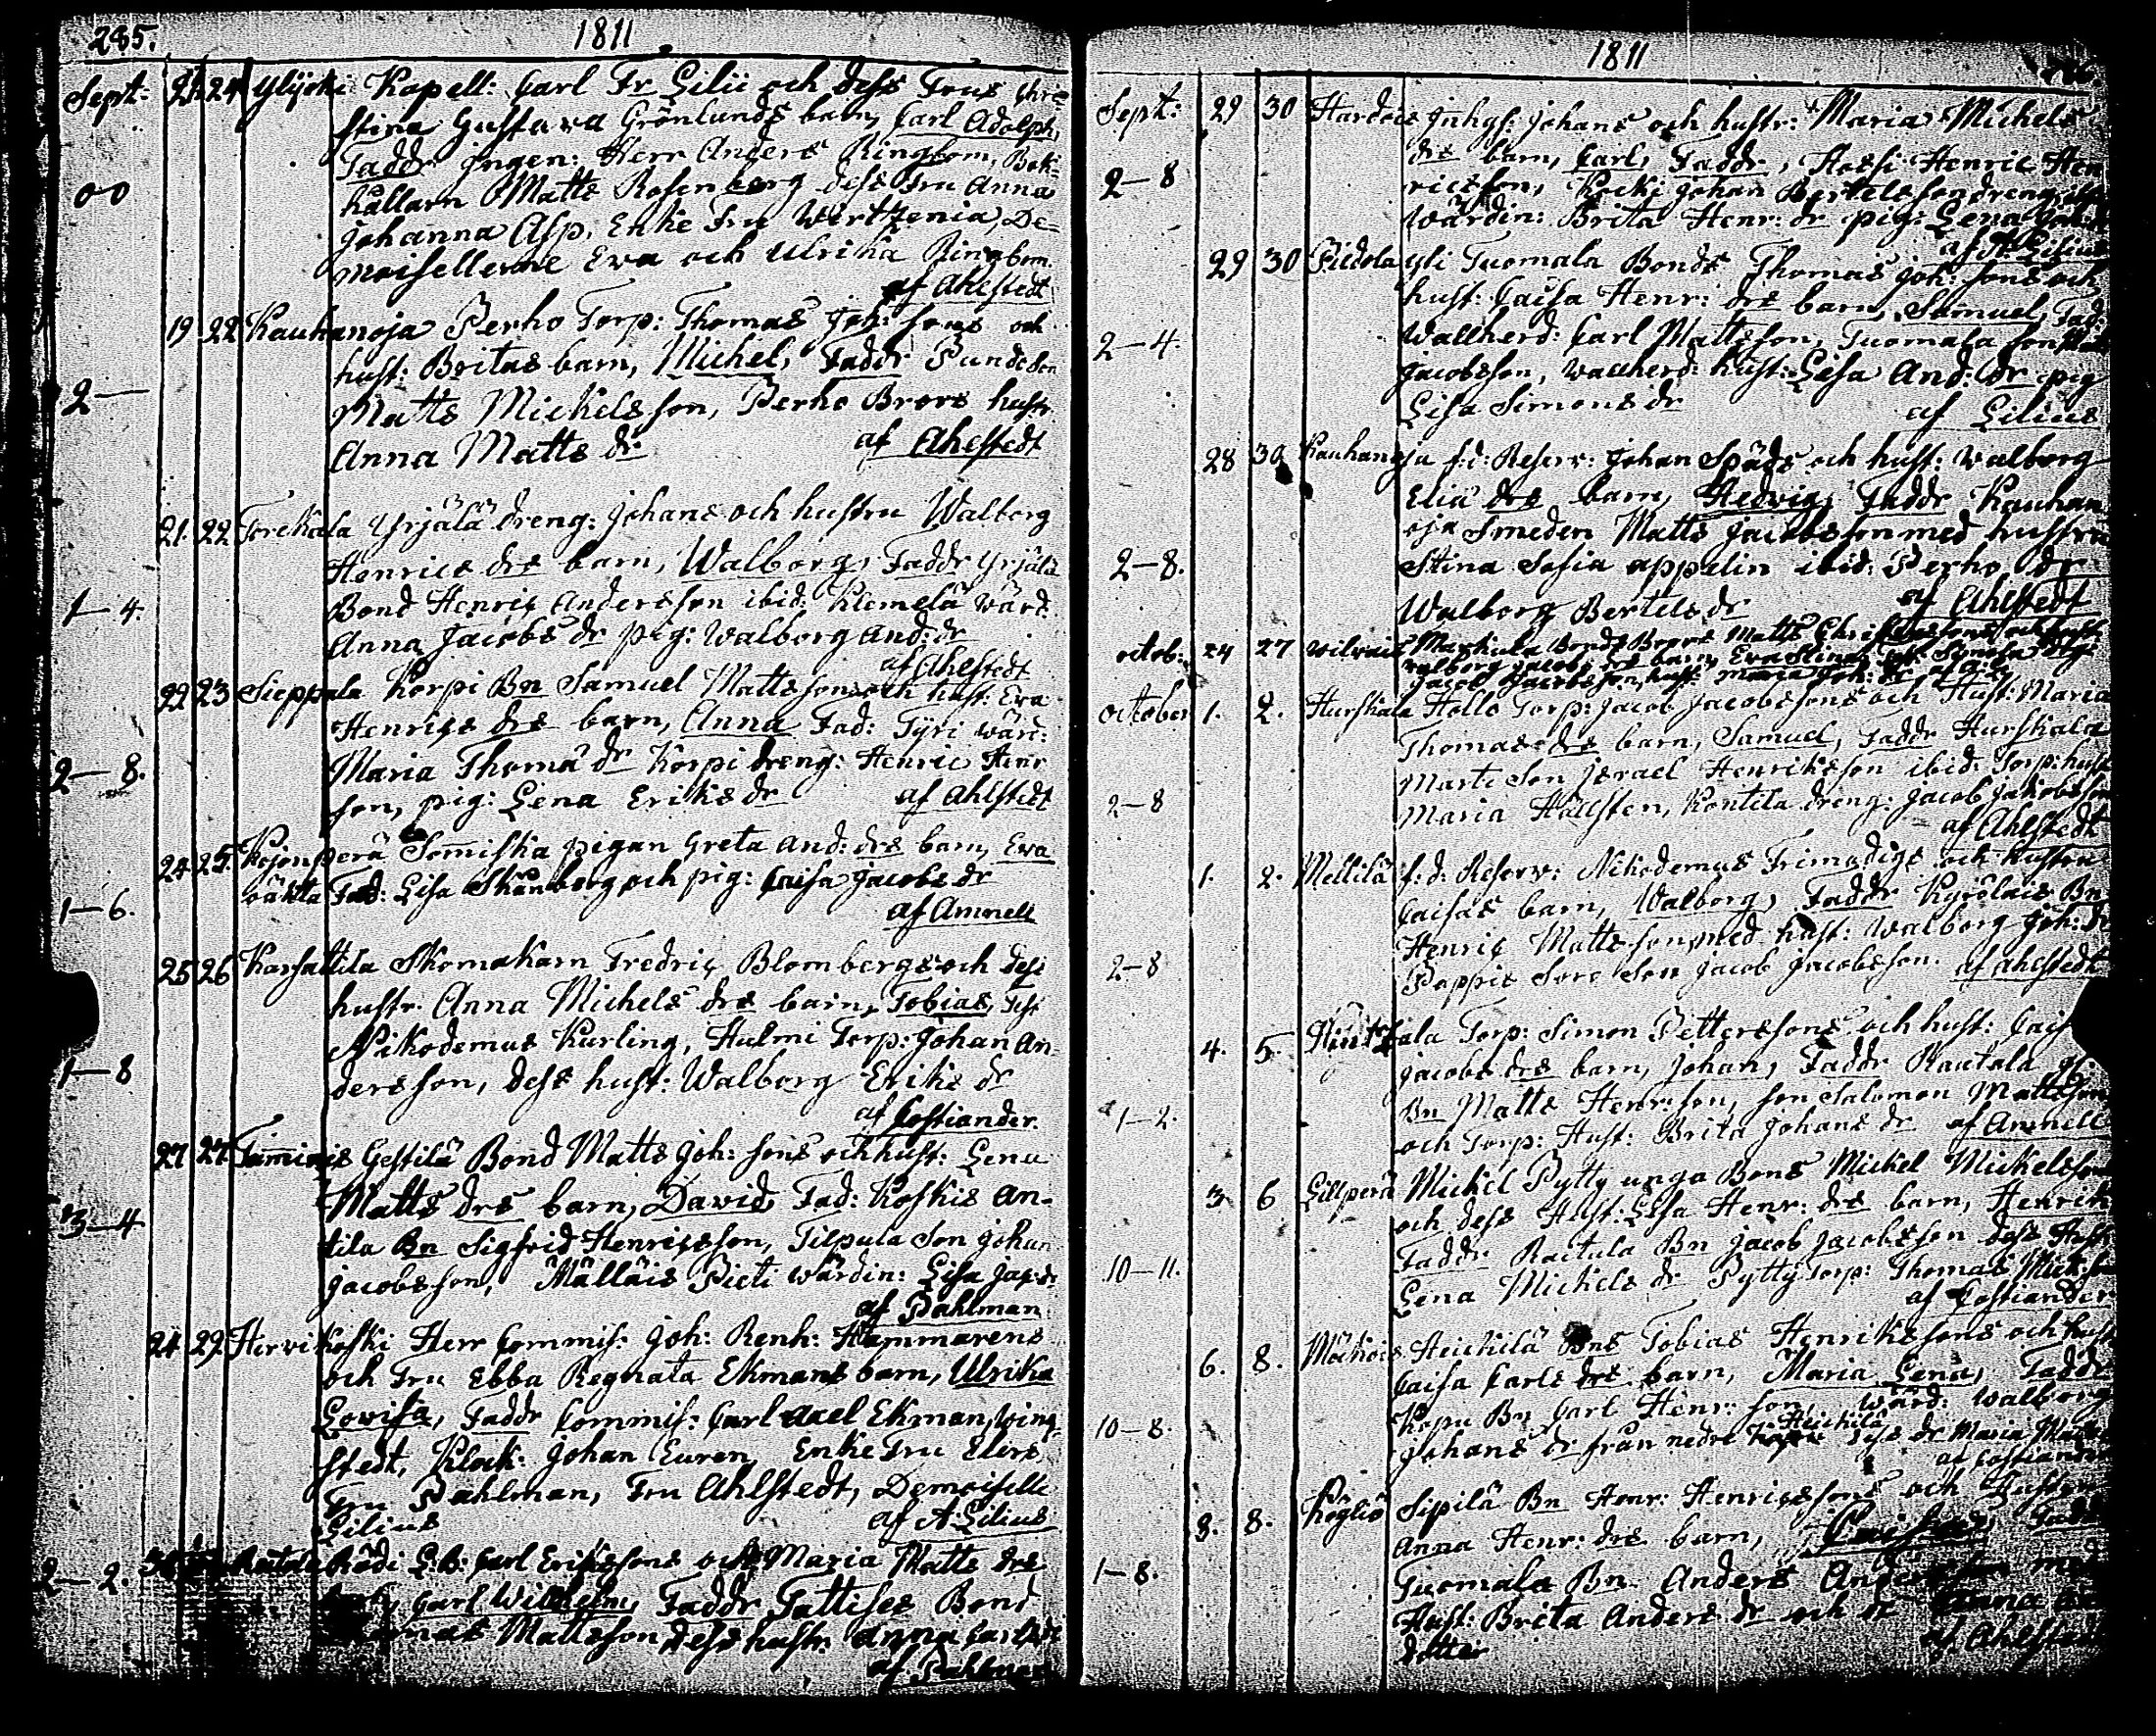 285.
1811
Sept: 21. 24 Ylijoki Kapell: Carl Fr Lilii och dess Frus Chri-
stina Gustava Grönlunds barn, Carl Adolph,
Faddr Ingen: Herr Anders Ringbom, Bok-
00
hållarn Matts Rosenberg dess Fru Anna
Johanna Asp. Enke Fru Wertzenia, De-
moisellerne Eva och Ulrika Ringbom.
af Ahlstedt
19 22 Kauhanoja Perho Torp: Thomas Joh: sons och
hust: Britas barn, Michel, Faddr
2—
Matts Michelsson, Perho Brors hustr
Anna Matts dr af Ahlstedt
21. 22 Torckala Yrjälä dreng: Johans och hustru Walborg
Henrics drs barn, Walborg, Faddr Yrjälä
1—4.
Bond Henric Andersson ibid: Klemelä Wärd.
Anna Jacobs dr pig: Walborg And: dr
af Ahlstedt
22 23 Sieppala Korpi Bn Samuel Mattssons och hust: Eva
Henrics drs barn, Anna Fad: Tyri wärd:
2—8.
Maria Thoma dr Korpi dreng: Henric Henr
son, pig: Lena Eriks dr af Ahlstedt
24 25. Kojonperä Somiska pigan Greta And: drs barn, Eva
oäkta Fad: Lisa Skönberg och pig: Caisa Jacobs dr
1—6.
af Amnell
25 26 Karsattila Skomakarn Fredric Blombergs och dess
hustr Anna Michels drs barn, Tobias,
Nikodemus Kurling, Hulmi Torp: Johan An-
1—8
dersson, dess hust: Walborg Eriks dr
af Costiander.
27 27 Tammiais Gestilä Bond Matts Joh: sons och hust: Lena
Matts drs barn, David Fad: Koskis An-
3—4
tila Bn Sigfrid Henricsson, Tilpula Son Johan
Jacobsson, Mälläis Pieti wärdin: Lisa Jac: dr
af Pahlman
24 29 Hervikoski Herr Commis: Joh: Renh: Hammarens
och Fru Ebba Regnata Ekmans barn, Ulrika
Lovisa, Faddr Commis: Carl Axel Ekman, Wing-
stedt, Klock: Johan Euren, Enke Fru Elers
Fru Pahlman, Fru Ahlstedt, Demoiselle
Lilius af A: Lilius
2—2. Rödi Carl Ericssons och Maria Matts drs
Carl Wilhelm, Faddr Tattises Bond
Mattsson dess hustr: Anna
af Pahlman
1811
Sept: 29 30 Hardois Inhys: Johans och hustr: Maria Michels
drs barn, Carl, Faddr, Hossi Henric Hen
2—8
ricsson, Kocki Johan Bertelsson dreng
wärdin: Brita Henr: dr pig: Lena
af A: Lilius
29 30 Pildola Yli Tuomala Bonds Thomas Joh: sons och
hust: Caisa Henr: drs barn, Samuel, Fad:
2—4.
Wallherd: Carl Mattsson, Tuomala son
Jacobsson, Wallherd: hust: Lisa And: dr pig
Lisa Simons dr af Lilius
28 30 Kauhanoja f:d: Reserv: Johan Späds och hust: Walborg
Elia drs barn, Hedvig, Faddr Kauhan
oja Smeden Matts Jacobsson med hustru
2—8.
Stina Sofia Appelin ibid: Perho dr
Walborg Bertels dr af Ahlstedt
octob: 24 27 Wilvais Markula Bonds Brors Matts
Walborg Jacobs drs barn, Eva Stina
Jacob Jacobsson, hust: Maria Joh: dr
october 1. 2. Hurskala Hollo Torp: Jacob Jacobssons och Hust: Maria
Thomas drs barn, Samuel, Faddr Hurskala
Marti Son Israel Henriksson ibid: Torp: hust
2—8
Maria Hällsten, Kontila dreng: Jacob Jakobsson
af Ahlstedt
1. 2. Mellilä f:d: Reserv: Nikodemus Frimodigs och hustru
Caisas barn, Walborg, Faddr Kyrölais Bn
Henric Mattsson med hust: Walborg Joh: dr
2—8
Pappis Son Jacob Jacobsson. af Ahlstedt
4. 5. Torp: Simon Petterssons och hust:
Jacobs drs barn, Johan, Faddr Rautala
Bn Matts Henr: son, son Salomon Mattsson
1—2.
och Torp: Hust: Brita Johans dr af Amnell
3 6 Lillperä Mickel Pytty unga Bons Mickel Mickelsson
och dess Hust: Lisa Henr: drs barn, Henrik
Faddr Raitula Bn Jacob Jacobsson dess Hust
10—11.
Lena Michels dr Pytty Torp: Thomas
af Costiander
6. 8. Mäkois Heickilä Bns Tobias Henrikssons och hust
Caisa Carls drs barn, Maria Lena, Faddr
Köpu Bn Carl Henr: son, wärd: Walborg
10—8.
Johans dr från nedre Heickilä dr Maria
af Costiander
8. 8. Köyliö Sipilä Bn Henr: Henricssons och Hustru
Anna Henr: drs barn, Caisa, Fadd
1—8.
Tuomala Bn Anders Andersson med
Hust: Brita Anders dr och dr Anna
dotter af Ahlstedt